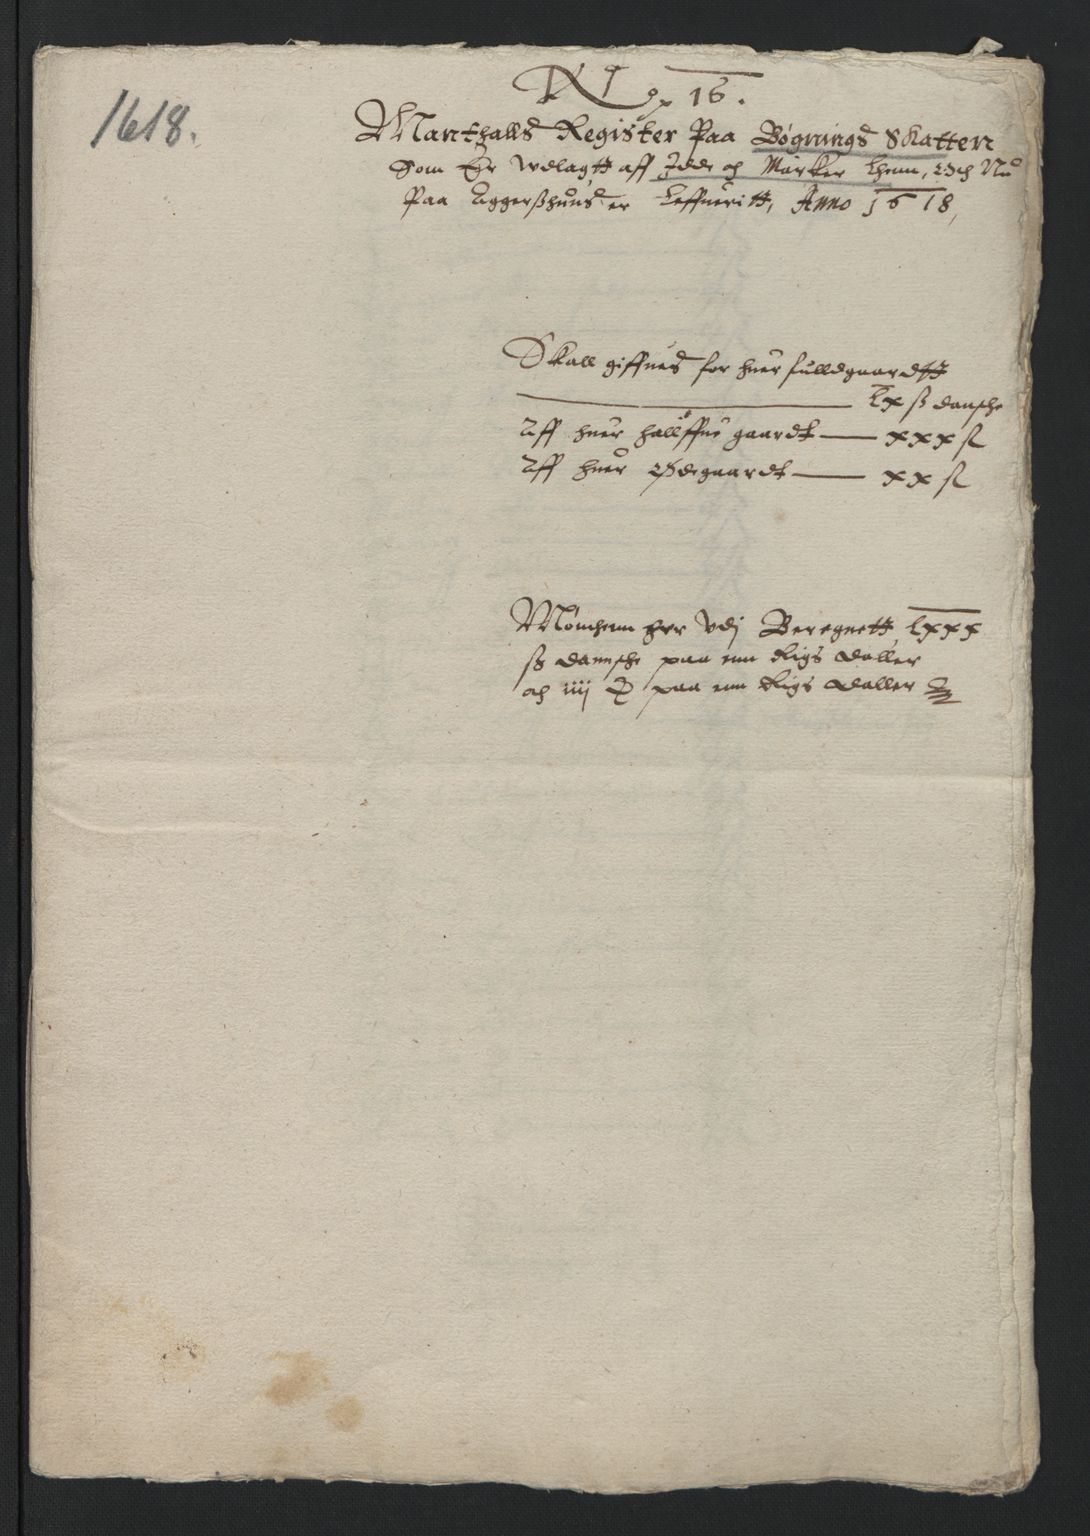 1618.
No 16.
Manthalls Register Paa Bøgnings Skatten
Som Er Udlagtt aff Idde och Marker Lhenn, Och Nu
Paa Aggerßhuus er Leffueritt, Anno 1618,
Skall giffues for huer fulldgaardtt
Lx ß danshe
Aff huer hallffue gaardt — xxx ß
Aff huer Ødegaardt — xx ß
Mønthenn her Udj Beregnett Lxxx
ß danshe paa enn Rigs daller
och iiij paa enn Rigs daller